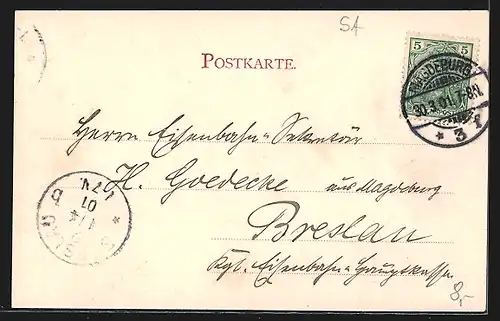 SA
POSTKARTE.
5 5
MAGDEBURG
30.3.01. 7-8N.
* 3 f
Herrn Eisenbahn-Sekretär
H. Goedecke aus Magdeburg
Breslau
Kgl. Eisenbahn-Hauptkasse
BRESLAU
1/4
01
7-
8,-